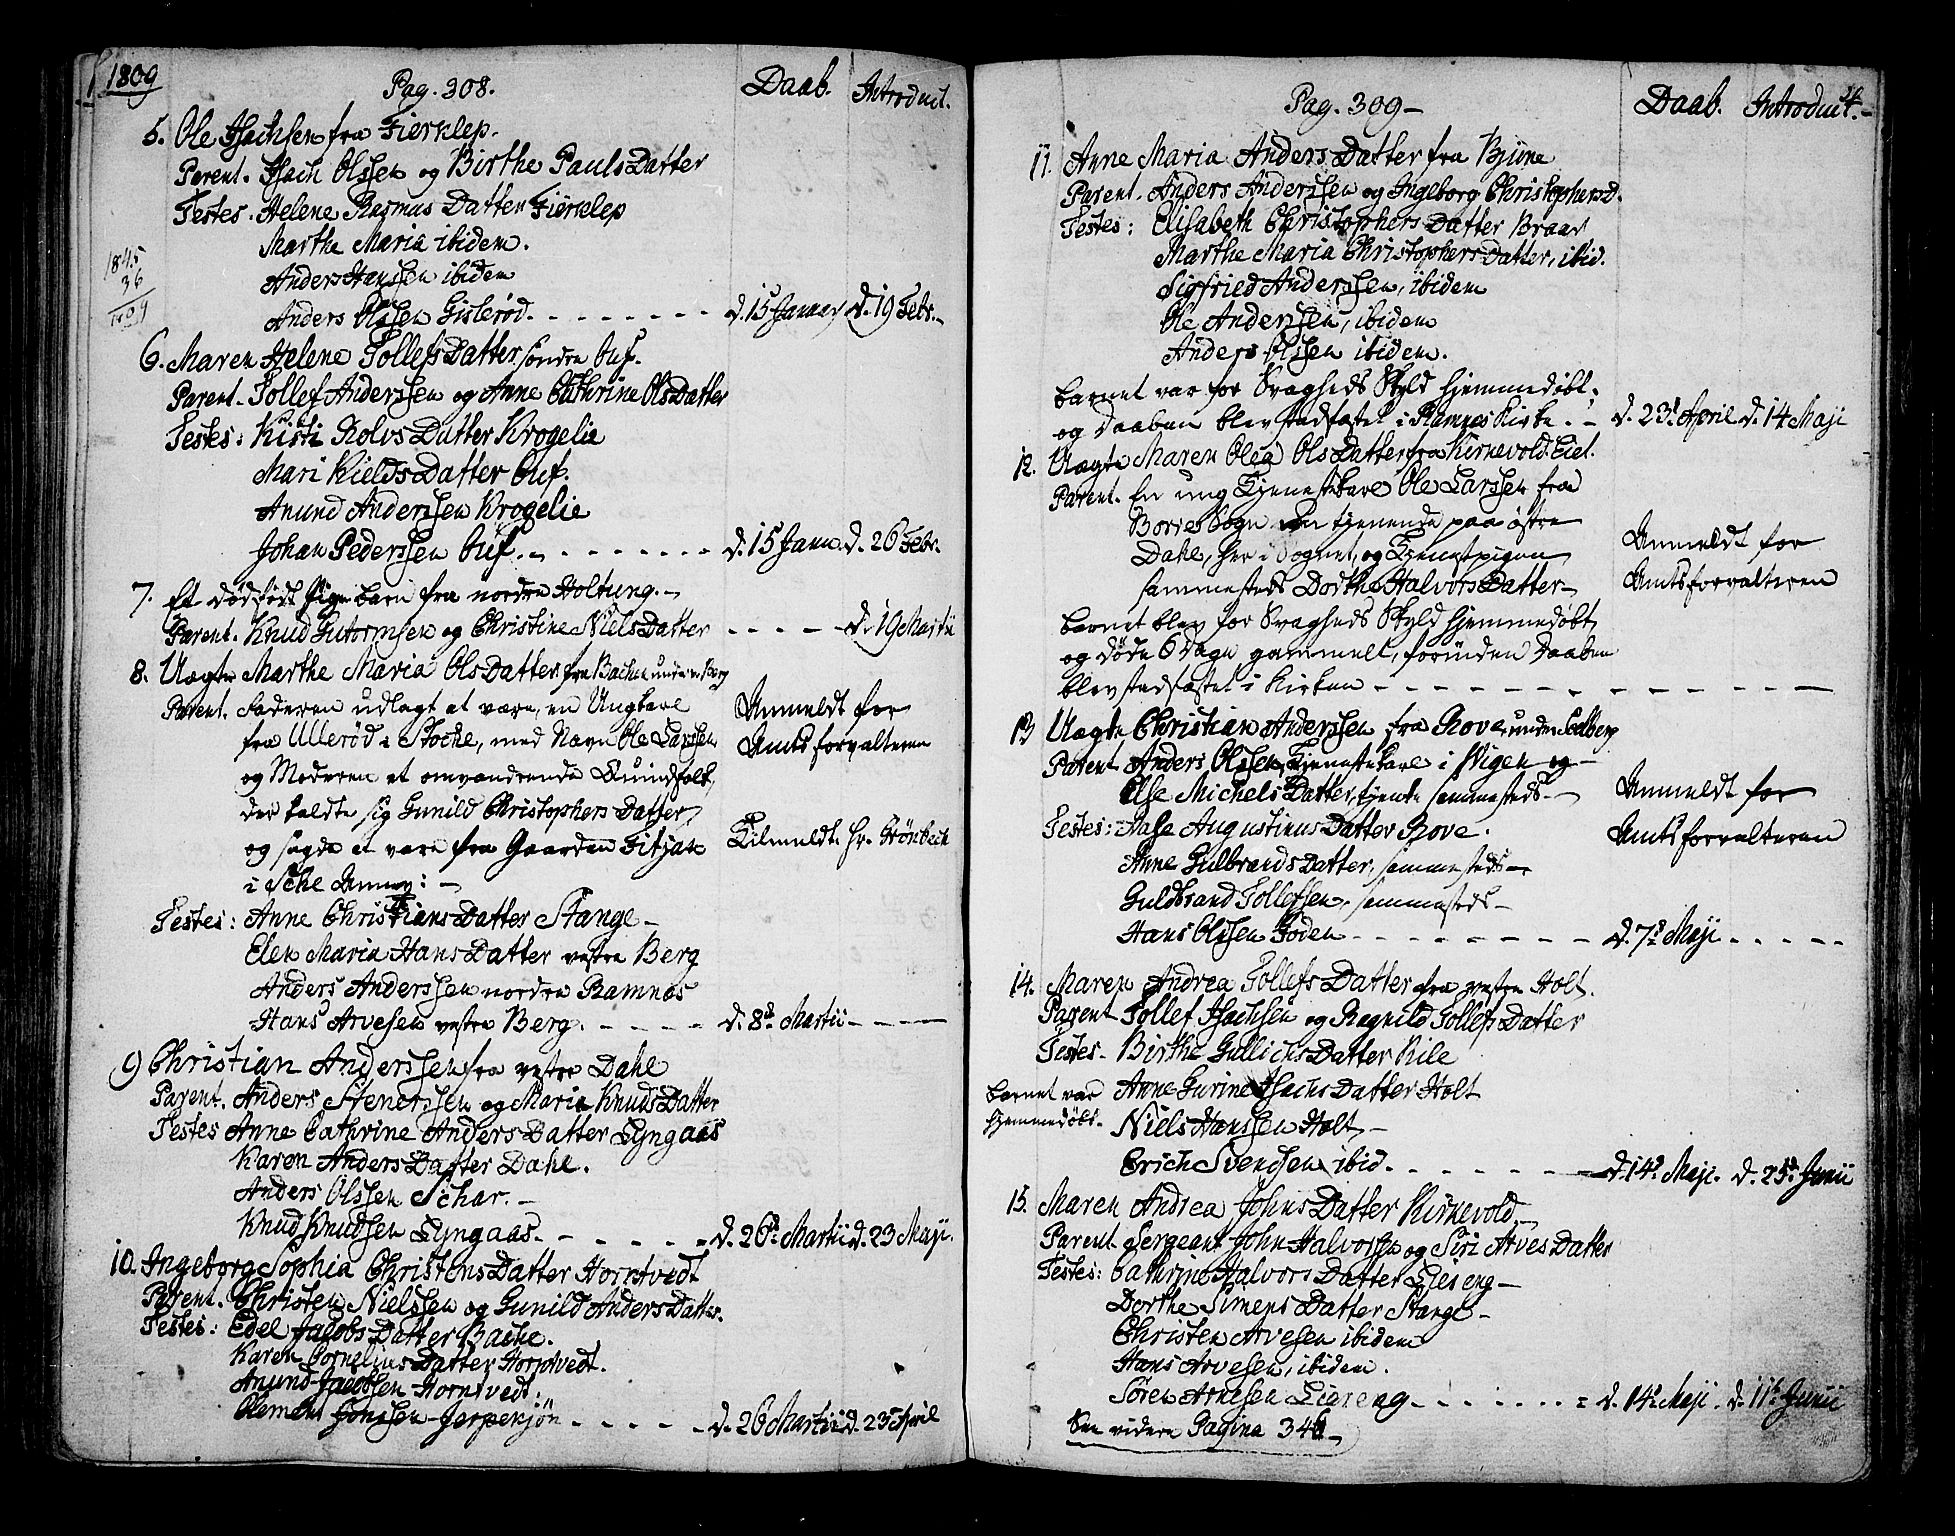 1809
Pag. 308. Daab. Introduct.
5. Ole Isachsen fra Fierklep.
Parent. Isach Olssen og Birthe Pauls Datter
Testes. Helene Rasmus Datter Fierklep
Marthe Maria ibidem.
Anders Hanssen ibidem
1845
36
1809
Anders Olssen Gislerød. d. 15 Januar d. 19 Febr.
6. Maren Helene Tollefs Datter søndre Auf.
Parent. Tollef Anderssen og Anne Cathrine Ols Datter
Testes: Kisti Rolvs Datter Krogelie
Mari Kields Datter Auf.
Anund Anderssen Krogelie
Johan Pederssen Auf. d. 15 Janu. d. 26 Febr.
7. Et dødfødt Pigebarn fra nordre Holtung.
Parent. Knud Gutormsen og Christine Niels Datter d. 19 Martii
8. Uægte Marthe Maria Ols Datter fra Bachen under v. Berg
Parent. Faderen udlagt at være, en Ungkarl Anmeldt for
fra Ullerød i Stocke, med Navn Ole Larssen Amtsforvalteren
og Moderen et omvandrende Quindfolk,
der kaldte sig Gunild Christophers Datter,
og sagde at være fra Gaarden Fitjan Tilmeldt. Hr. Grönbech
i Sche Annex: -
Testes: Anne Christians Datter Stange -
Elen Maria Hans Datter vestre Berg
Anders Anderssen nordre Ramnæs
Hans Arvesen vestre Berg. d. 8de Martii
9 Christian Anderssen fra vestre Dahl
Parent. Anders Stenerssen og Maria Knuds Datter
Testes Anne Cathrine Anders Datter Lyngaas
Karen Anders Datter Dahl.
Anders Olssen Schar. -
Knud Knudsen Lyngaas. d. 26de Martii d. 23 Maji.
10. Ingeborg Sophia Christens Datter Horntvedt
Parent. Christen Nielssen og Gunild Anders Datter.
Testes: Edel Jacobs Datter Bache.
Karen Cornelius Datter Horntvedt.
Anund Jacobsen Horntvedt.
Clement Jonssen Jerpekjøn d. 26 Martii d. 23 April
Pag. 309 - Daab. Introduct. -
11. Anne Maria Anders Datter fra Bjune
Parent. Anders Anderssen og Ingeborg Christophers D.
Testes: Elisabeth Christophers Datter Braar
Marthe Maria Christophers Datter, ibid.
Sigfried Anderssen, ibidem
Ole Anderssen, ibidem
Anders Olssen ibidem.
Barnet var for Svagheds Skyld hjemmedøbt.
og Daaben blev stadfæstet i Ramnes Kirke. - d. 23d April d. 14 Maji
12. Uægte Maren Olea Ols Datter fra Kirnevold. Eiet.
Parent. En ung Tjenestekarl Ole Larssen fra
Borre Sogn den tjenende paa østre Anmeldt for
Dahl, her i Sognet, og Tjenestpigen
sammesteds Dorthe Halvors Datter - Amtsforvalteren
Barnet blev for Svagheds Skyld hjemmedøbt,
og døde 6 Dage gammelt, forinden Daaben
blev stadfæstet i Kirken
13 Uægte Christian Anderssen fra Rove, under Solberg
Parent Anders Olssen, Tjenestekarl i Wigen og -
Else Michels Datter, tjente sammesteds - Anmeldt for
Testes: Aase Augustinus Datter Rove. Amtsforvalteren
Anne Gulbrands Datter, sammesteds -
Guldbrand Tollefssen, sammesteds -
Hans Olssen Goden d. 7de Maji
14. Maren Andrea Tollefs Datter fra vestre Holt.
Parent Tollef Isachsen og Ragnild Tollefs Datter
Testes. Birthe Gullichs Datter Kile
Barnet var Anne Gurine Isachs Datter Holt
hjemmedøbt. Niels Hanssen Holt, -
Erich Svendsen ibid. d. 14d Maji. d. 25de Junii
15. Maren Andrea Johns Datter Kirnevold,
Parent. Sergeant John Halvorssen og Siri Arves Datter
Testes: Cathrine Halvors Datter Liereng -
Dorthe Simens Datter Stange -
Christen Arvesen ibidem
Hans Arvesen, ibidem.
Søren Arnesen Liereng d. 14de Maji. d. 11te Junii
See videre Pagina 346